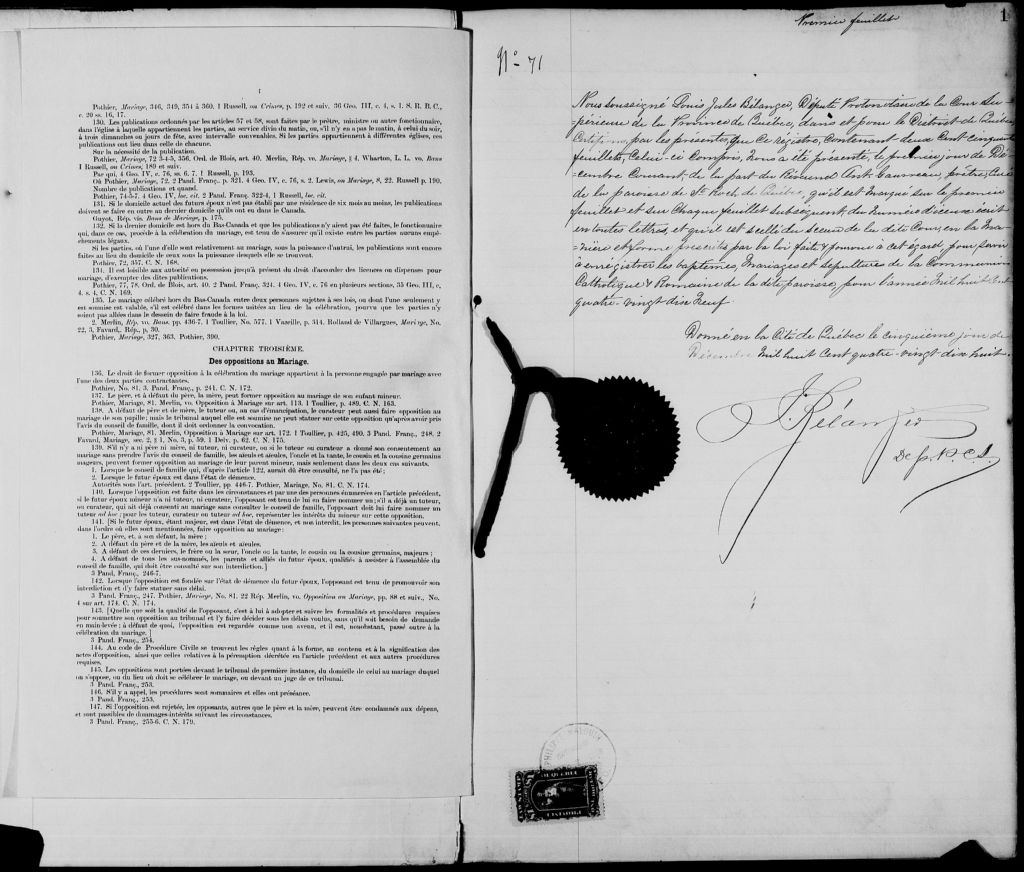 Pothier, Mariage, 346, 349, 354 à 360. 1 Russell, on Crimes, p. 192 et suiv. 36 Geo. III, c. 4, s. 1. S. R. B. C.,
c. 20 ss. 16, 17.
130. Les publications ordonnées par les articles 57 et 58, sont faites par le prêtre, ministre ou autre fonctionnaire,
dans l'église à laquelle appartiennent les parties, au service divin du matin, ou, s'il n'y en a pas le matin, à celui du soir,
à trois dimanches ou jours de fête, avec intervalle convenables. Si les parties appartiennent à différentes églises, ces
publications ont lieu dans celle de chacune.
Sur la nécessité de la publication.
Pothier, Mariage, 72 3-4-5, 356. Ord. de Blois, art. 40. Merlin, Rép. vo. Mariage, § 4. Wharton, L. L. vo. Bans
1 Russell, on Crimes, 189 et suiv.
Par qui, 4 Geo. IV, c. 76, ss. 6, 7. 1 Russell, p. 193.
Où Pothier, Mariage, 72. 2 Pand. Franç., p. 321. 4 Geo. IV, c. 76, s. 2. Lewis, on Mariage, 8, 22. Russell p. 190.
Nombre de publications et quand.
Pothier, 74-5-7. 4 Geo. IV, loc. cit. 2 Pand. Franç. 322-4, 1 Russell, loc. cit.
131. Si le domicile actuel des futurs époux n'est pas établi par une résidence de six mois au moins, les publications
doivent se faire en outre au dernier domicile qu'ils ont eu dans le Canada.
Guyot, Rép. vis. Bans de Mariage, p. 175.
132. Si la dernier domicile est hors du Bas-Canada et que les publications n'y aient pas été faites, le fonctionnaire
qui, dans ce cas, procède à la célébration du mariage, est tenu de s'assurer qu'il existe entre les parties aucuns empê-
chements légaux.
Si les parties, où l'une d'elle sont relativement au mariage, sous la puissance d'autrui, les publications sont encore
faites au lieu du domicile de ceux sous la puissance desquels elle se trouvent.
Pothier, 72, 357. C. N. 168.
134. Il est loisible aux autorité en possession jusqu'à présent du droit d'accorder des licences ou dispenses pour
mariage, d'exempter des dites publications.
Pothier, 77, 78. Ord. de Blois, art. 40. 2 Pand. Franç. 324. 4 Geo. IV, c. 76 en plusieurs sections. 35 Geo. III, c,
4, s. 4. C. N. 169.
135. Le mariage célébré hors du Bas-Canada entre deux personnes sujettes à ses lois, ou dont l'une seulement y
est soumise est valable, s'il est célébré dans les formes usitées au lieu de la célébration, pourvu que les parties n'y
soient pas allées dans le dessein de faire fraude à la loi.
2. Merlin, Rép. vo. Bans, pp. 436-7. 1 Toullier, No. 577. 1 Vazeille, p. 314. Rolland de Villargues, Mariage, No,
22, 3, Favard,. Rép., p, 30.
Pothier, Mariage, 327, 363. Pothier, 390.
CHAPITRE TROISIÈME.
Des oppositions au Mariage.
136. Le droit de former opposition à la célébration du mariage appartient à la personne engagée par mariage avec
l'une des deux parties contractantes.
Pothier, No. 81. 3. Pand. Franç., p. 241. C. N. 172.
137. Le père, et à défaut du père, la mère, peut former opposition au mariage de son enfant mineur.
Pothier, Mariage, 81. Merlin, vo. Opposition à Mariage sur art. 113. 1 Toullier, p. 489. C. N. 163.
138. A défaut de père et de mère, le tuteur ou, au cas d'émancipation, le curateur peut aussi faire opposition au
mariage de son pupille; mais le tribunal auquel elle est soumise ne peut statuer sur cette opposition qu'après avoir pris
l'avis du conseil de famille, dont il doit ordonner la convocation.
Pothier, Mariage, 81. Merlin, Opposition à Mariage sur art. 172. 1 Toullier, p. 425, 490. 3 Pand. Franç., 248, 2
Favard, Mariage, sec. 2, § 1, No. 3, p. 59. 1 Delv. p. 62. C. N. 175.
139. S'il n'y a ni père ni mère, ni tuteur, ni curateur, ou si le tuteur ou curateur a donné son consentement au
mariage sans prendre l'avis du conseil de famille, les aïeuls et aïeules, l'oncle et la tante, le cousin et la cousine germains
majeurs, peuvent former opposition au mariage de leur parent mineur, mais seulement dans les deux cas suivants.
1. Lorsque le conseil de famille qui, d'après l'article 122, aurait dû être consulté, ne l'a pas été;
2. Lorsque le futur époux est dans l'état de démence.
Autorités sous l'art. précédent. 2 Toullier, pp. 446-7. Pothier, Mariage, No. 81. C. N. 174.
140. Lorsque l'opposition est faite dans les circonstances et par une des personnes énumérées en l'article précédent,
si le futur époux mineur n'a ni tuteur, ni curateur, l'opposant est tenu de lui en faire nommer un; s'il a déjà un tuteur,
ou curateur, qui ait déjà consenti au mariage sans consulter le conseil de famille, l'opposant doit lui faire nommer un
tuteur ad hoc; pour les tuteur, curateur ou tuteur ad hoc, représenter les intérêts du mineur sur cette opposition.
141. [Si le futur époux, étant majeur, est dans l'état de démence, et non interdit, les personnes suivantes peuvent,
dans l'ordre où elles sont mentionnées, faire opposition au mariage:
1. Le père, et, à son défaut, la mère;
2. A défaut du père et de la mère, les aïeuls et aïeules,
3. A défaut de ces derniers, le frère ou la sœur, l'oncle ou la tante, le cousin ou la cousine germains, majeurs;
4. A défaut de tous les sus-nommés, les parents et alliés du futur époux, qualifiés à assister à l'assemblée du
conseil de famille, qui doit être consulté sur son interdiction.]
3 Pand. Franç., 246-7.
142. Lorsque l'opposition est fondée sur l'état de démence du futur époux, l'opposant est tenu de promouvoir son
interdiction et d'y faire statuer sans délai.
3 Pand. Franç., 247. Pothier, Mariage, No. 81. 22 Rép. Merlin, vo. Opposition au Mariage, pp. 88 et suiv., No.
4 sur art. 174. C. N. 174.
143. [Quelle que soit la qualité de l'opposant, c'est à lui à adopter et suivre les formalités et procédures requises
pour soumettre son opposition au tribunal et l'y faire décider sous les délais voulus, sans qu'il soit besoin de demande
en main-levée; à défaut de quoi, l'opposition est regardée comme non avenu, et il est, nonobstant, passé outre à la
célébration du mariage.]
3 Pand. Franç., 254.
144. Au code de Procédure Civile se trouvent les règles quant à la forme, au contenu et à la signification des
actes d'opposition, ainsi que celles relatives à la péremption décrétée en l'article précédent et aux autres procédures
requises.
145. Les oppositions sont portées devant le tribunal de première instance, du domicile de celui au mariage duquel
on s'oppose, ou du lieu où doit se célébrer le mariage, ou devant un juge de ce tribunal.
3 Pand. Franç., 253.
146. S'il y a appel, les procédures sont sommaires et elles ont préséance.
3 Pand. Franç., 253.
147. Si l'opposition est rejetée, les opposants, autres que le père et la mère, peuvent être condamnés aux dépens,
et sont passibles de dommages-intérêts suivant les circonstances.
3 Pand. Franç., 255-6. C. N. 179.
Premier feuillet
1
No 71
Nous soussigné Louis Jules Bélanger, Député Protonotaire de la Cour Su-
=périeure de la Province de Québec, dans et pour le District de Québec
Certifions, par les présentes, que ce régistre, contenant deux cent cinquante
feuillets, celui-ci compris, nous a été présenté, le premier jour de Dé-
=cembre courant, de la part du Révérend Ant. Gauvreau, prêtre, Curé
de la paroisse de St Roch de Québec, qu'il est marqué sur le premier
feuillet et sur chaque feuillet subséquent, du numéro d'iceux écrit
en toutes lettres, et qu'il est scellé du sceau de la dite Cour, en la ma-
=nière et forme prescrits par la loi faite & pourvue à cet égard, pour servir
à enrégistrer les baptêmes, mariages et sépultures de la Communion
Catholique & Romaine de la dite paroisse, pour l'année mil huit cent
quatre-vingt dix neuf.
Donné en la Cité de Québec le cinquième jour de
Décembre mil huit cent quatre-vingt dix huit.
J. Bélanger
Dep. P. C. S.
LAW STAMP
PROVINCE
OF QUEBEC
$1